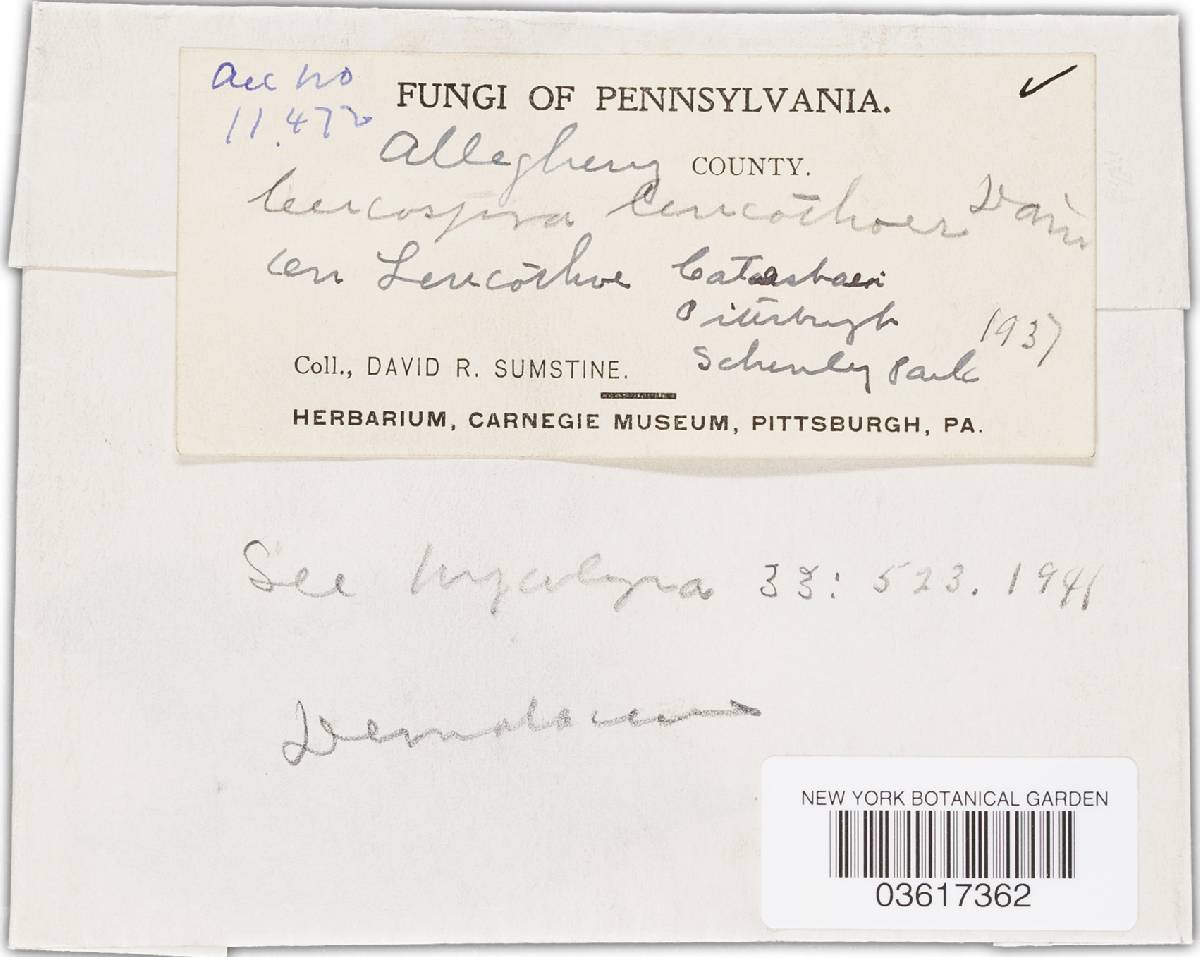 Acc no
11.472
FUNGI OF PENNSYLVANIA.
Allegheny COUNTY.
on Leucothoe Catesbaei
Pittsburgh
1937
Coll., DAVID R. SUMSTINE. Schenley Park
HERBARIUM, CARNEGIE MUSEUM, PITTSBURGH, PA.
See Mycologia 33: 523. 1941
NEW YORK BOTANICAL GARDEN
03617362